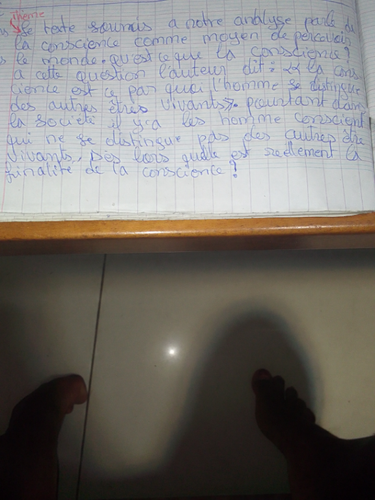 thème
Le texte soumis a notre analyse parle de
la conscience comme moyen de percevoir
le monde. qu'est ce que la conscience?
a cette question l'auteur dit: « la cons
cience est ce par quoi l'homme se distingue
des autres êtres vivants ». pourtant dans
la société il y'a les homme conscient
qui ne se distingue pas des autres être
vivants. Dès lors quelle est reellement la
finalité de la conscience?